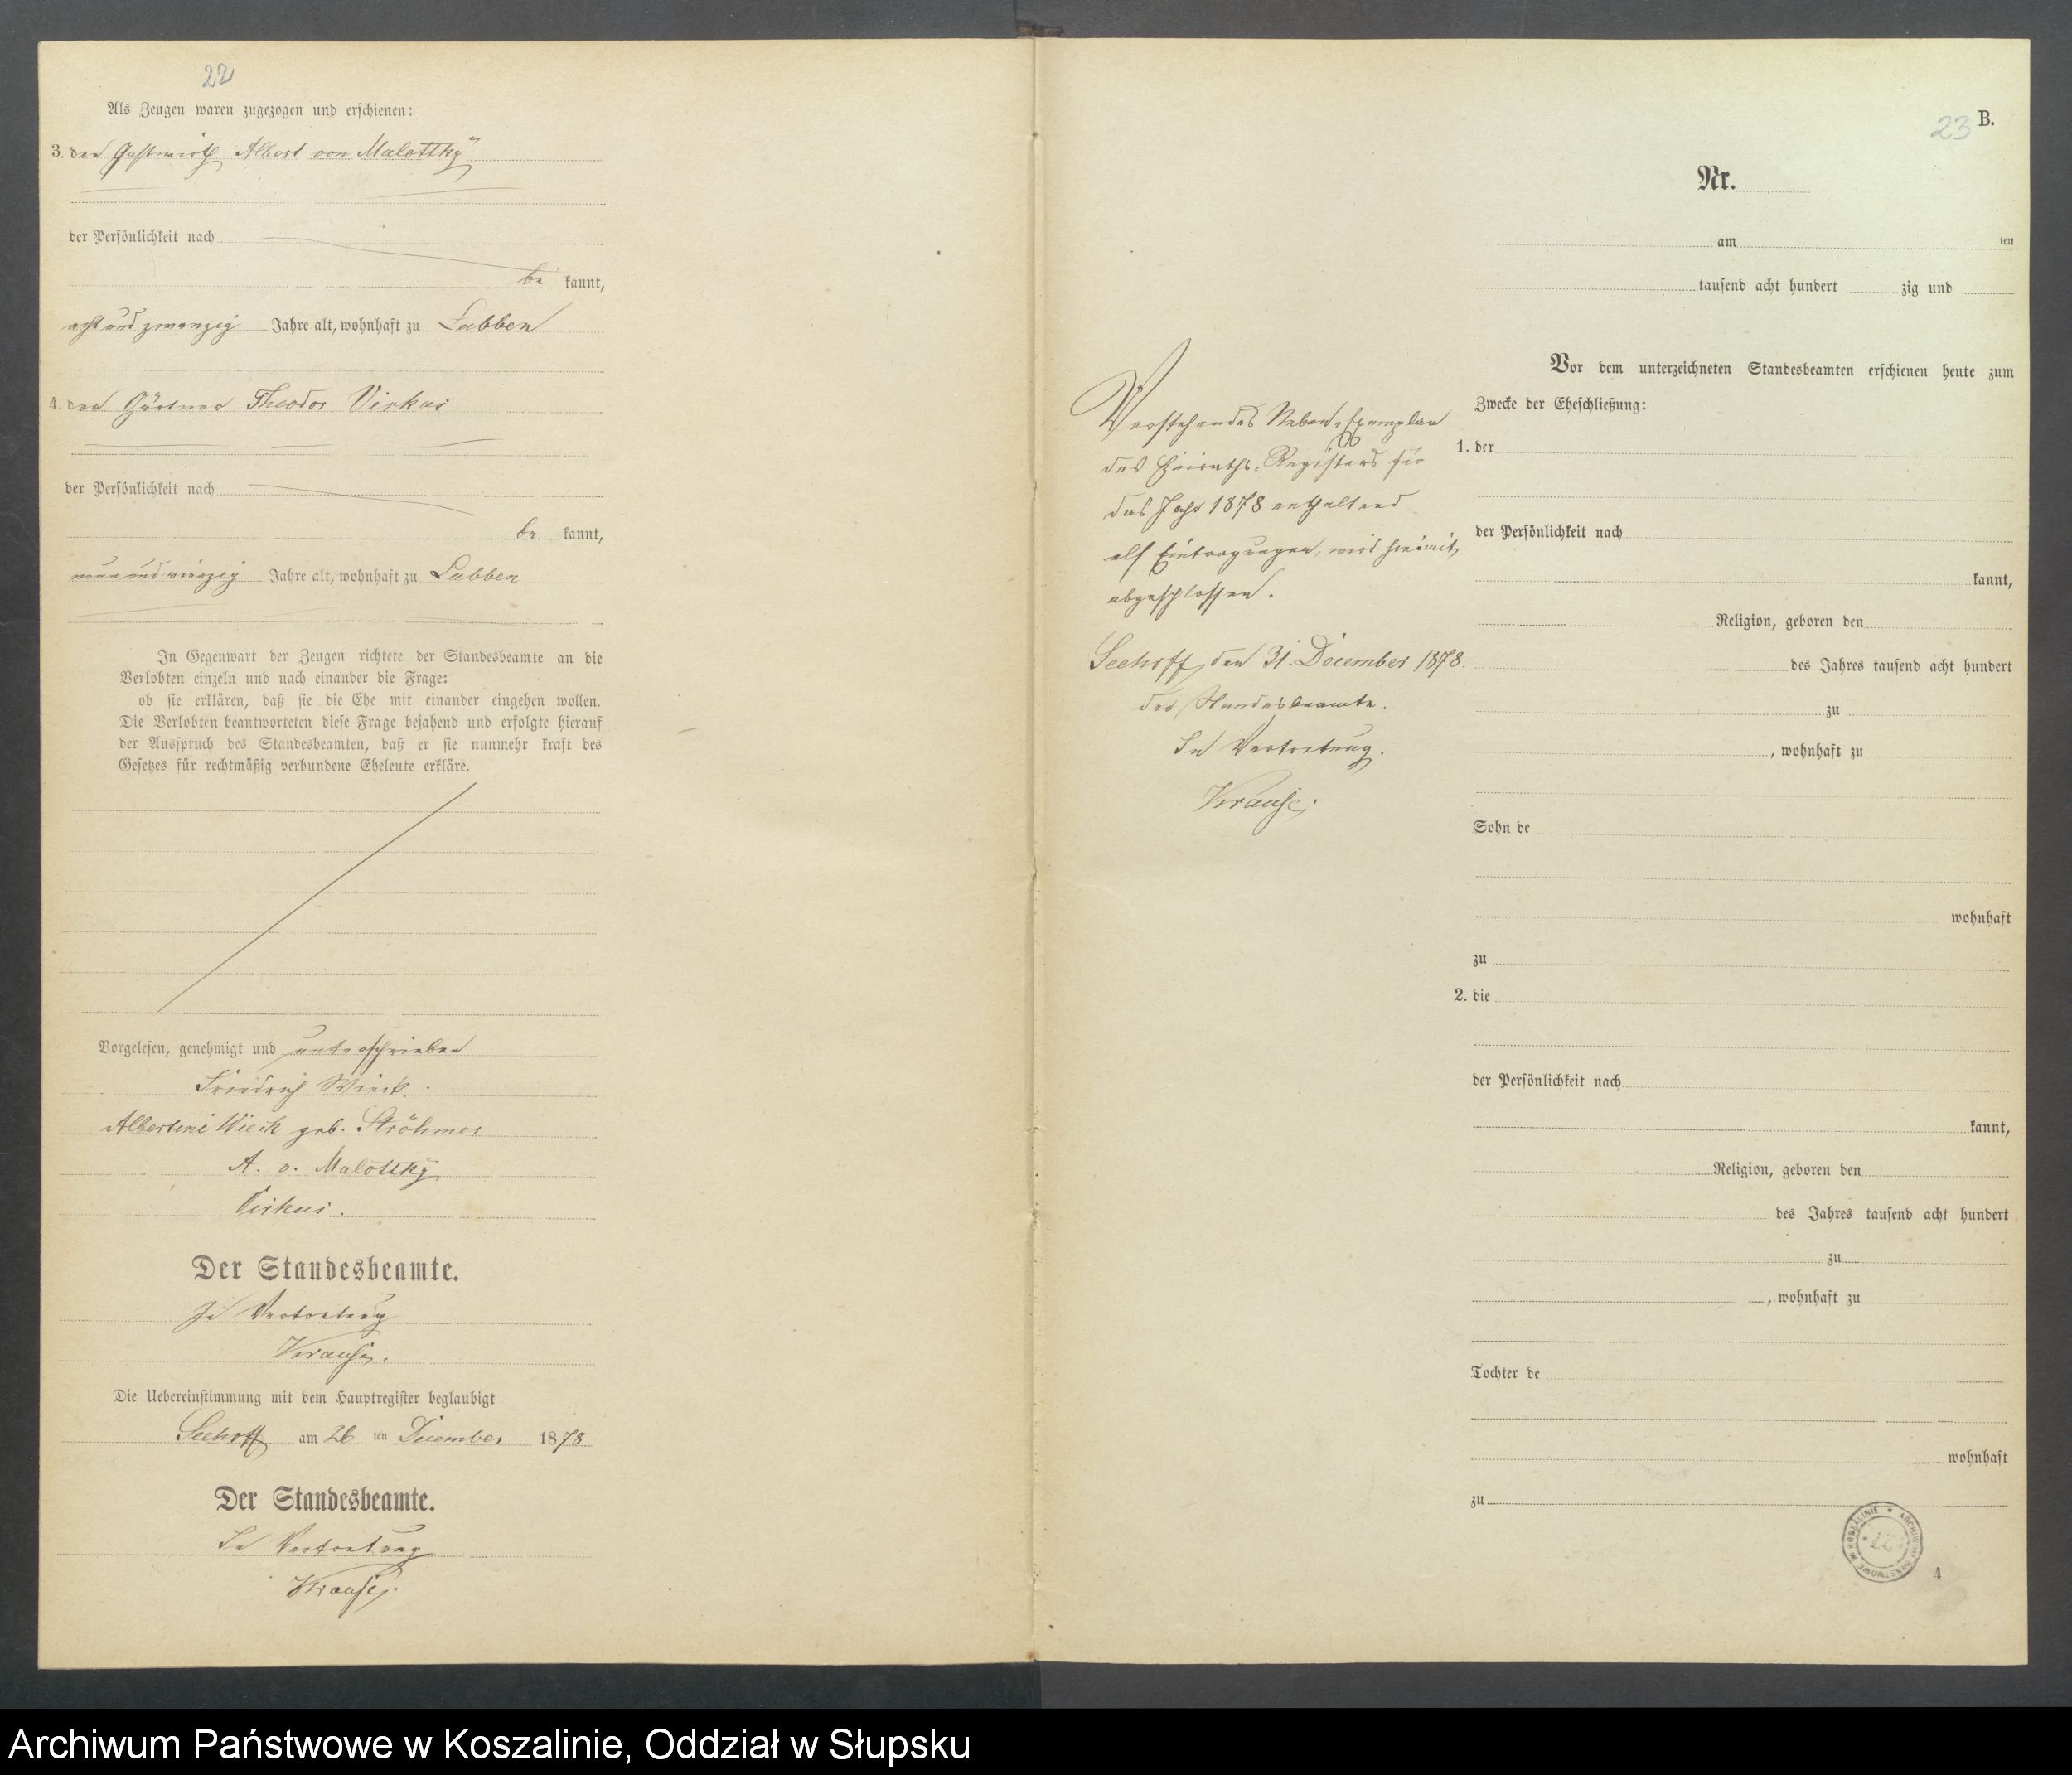 22
Als Zeugen waren zugezogen und erschienen:
3. der Gastwirth Albert von Malottky
der Persönlichkeit nach
be kannt,
acht und zwanzig Jahre alt, wohnhaft zu Lubben
4. der Gärtner Theodor Virkus
der Persönlichkeit nach
be kannt,
neun und vierzig Jahre alt, wohnhaft zu Lubben
In Gegenwart der Zeugen richtete der Standesbeamte an die
Verlobten einzeln und nach einander die Frage:
ob sie erklären, daß sie die Ehe mit einander eingehen wollen.
Die Verlobten beantworteten diese Frage bejahend und erfolgte hierauf
der Ausspruch des Standesbeamten, daß er sie nunmehr kraft des
Gesetzes für rechtmäßig verbundene Eheleute erkläre.
Vorgelesen, genehmigt und unterschrieben
Friedrich Wieck.
Albertine Wieck geb. Ströhmer
A. v. Malottky
Virkus.
Der Standesbeamte.
In Vertretung
Krause.
Die Uebereinstimmung mit dem Hauptregister beglaubigt
Seehoff am 26 ten December 1878
Der Standesbeamte.
In Vertretung
Krause.
23 B.
Nr.
am ten
tausend acht hundert zig und
Vor dem unterzeichneten Standesbeamten erschienen heute zum
Zwecke der Eheschließung:
1. der
der Persönlichkeit nach
kannt,
Religion, geboren den
des Jahres tausend acht hundert
zu
, wohnhaft zu
Sohn de
wohnhaft
zu
2. die
der Persönlichkeit nach
kannt,
Religion, geboren den
des Jahres tausend acht hundert
zu
, wohnhaft zu
Tochter de
wohnhaft
zu
Vorstehendes Neben-Exemplar
des Heiraths-Registers für
das Jahr 1878 enthaltend
elf Eintragungen, wird hiermit
abgeschlossen.
Seehoff, den 31. December 1878.
der Standesbeamte.
In Vertretung.
Krause.
ARCHIWUM PAŃSTWOWE W KOSZALINIE
4
Archiwum Państwowe w Koszalinie, Oddział w Słupsku